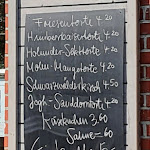 Friesentorte 4.20
Himbeerbaisertorte 4.20
Holunder-Sekttorte 4.20
Mohn-Mangotorte 4.20
Schwarzwälderkirsch 4.50
Jogh.-Sanddorntorte 4.20
Käsekuchen 3.60
Sahne -.60